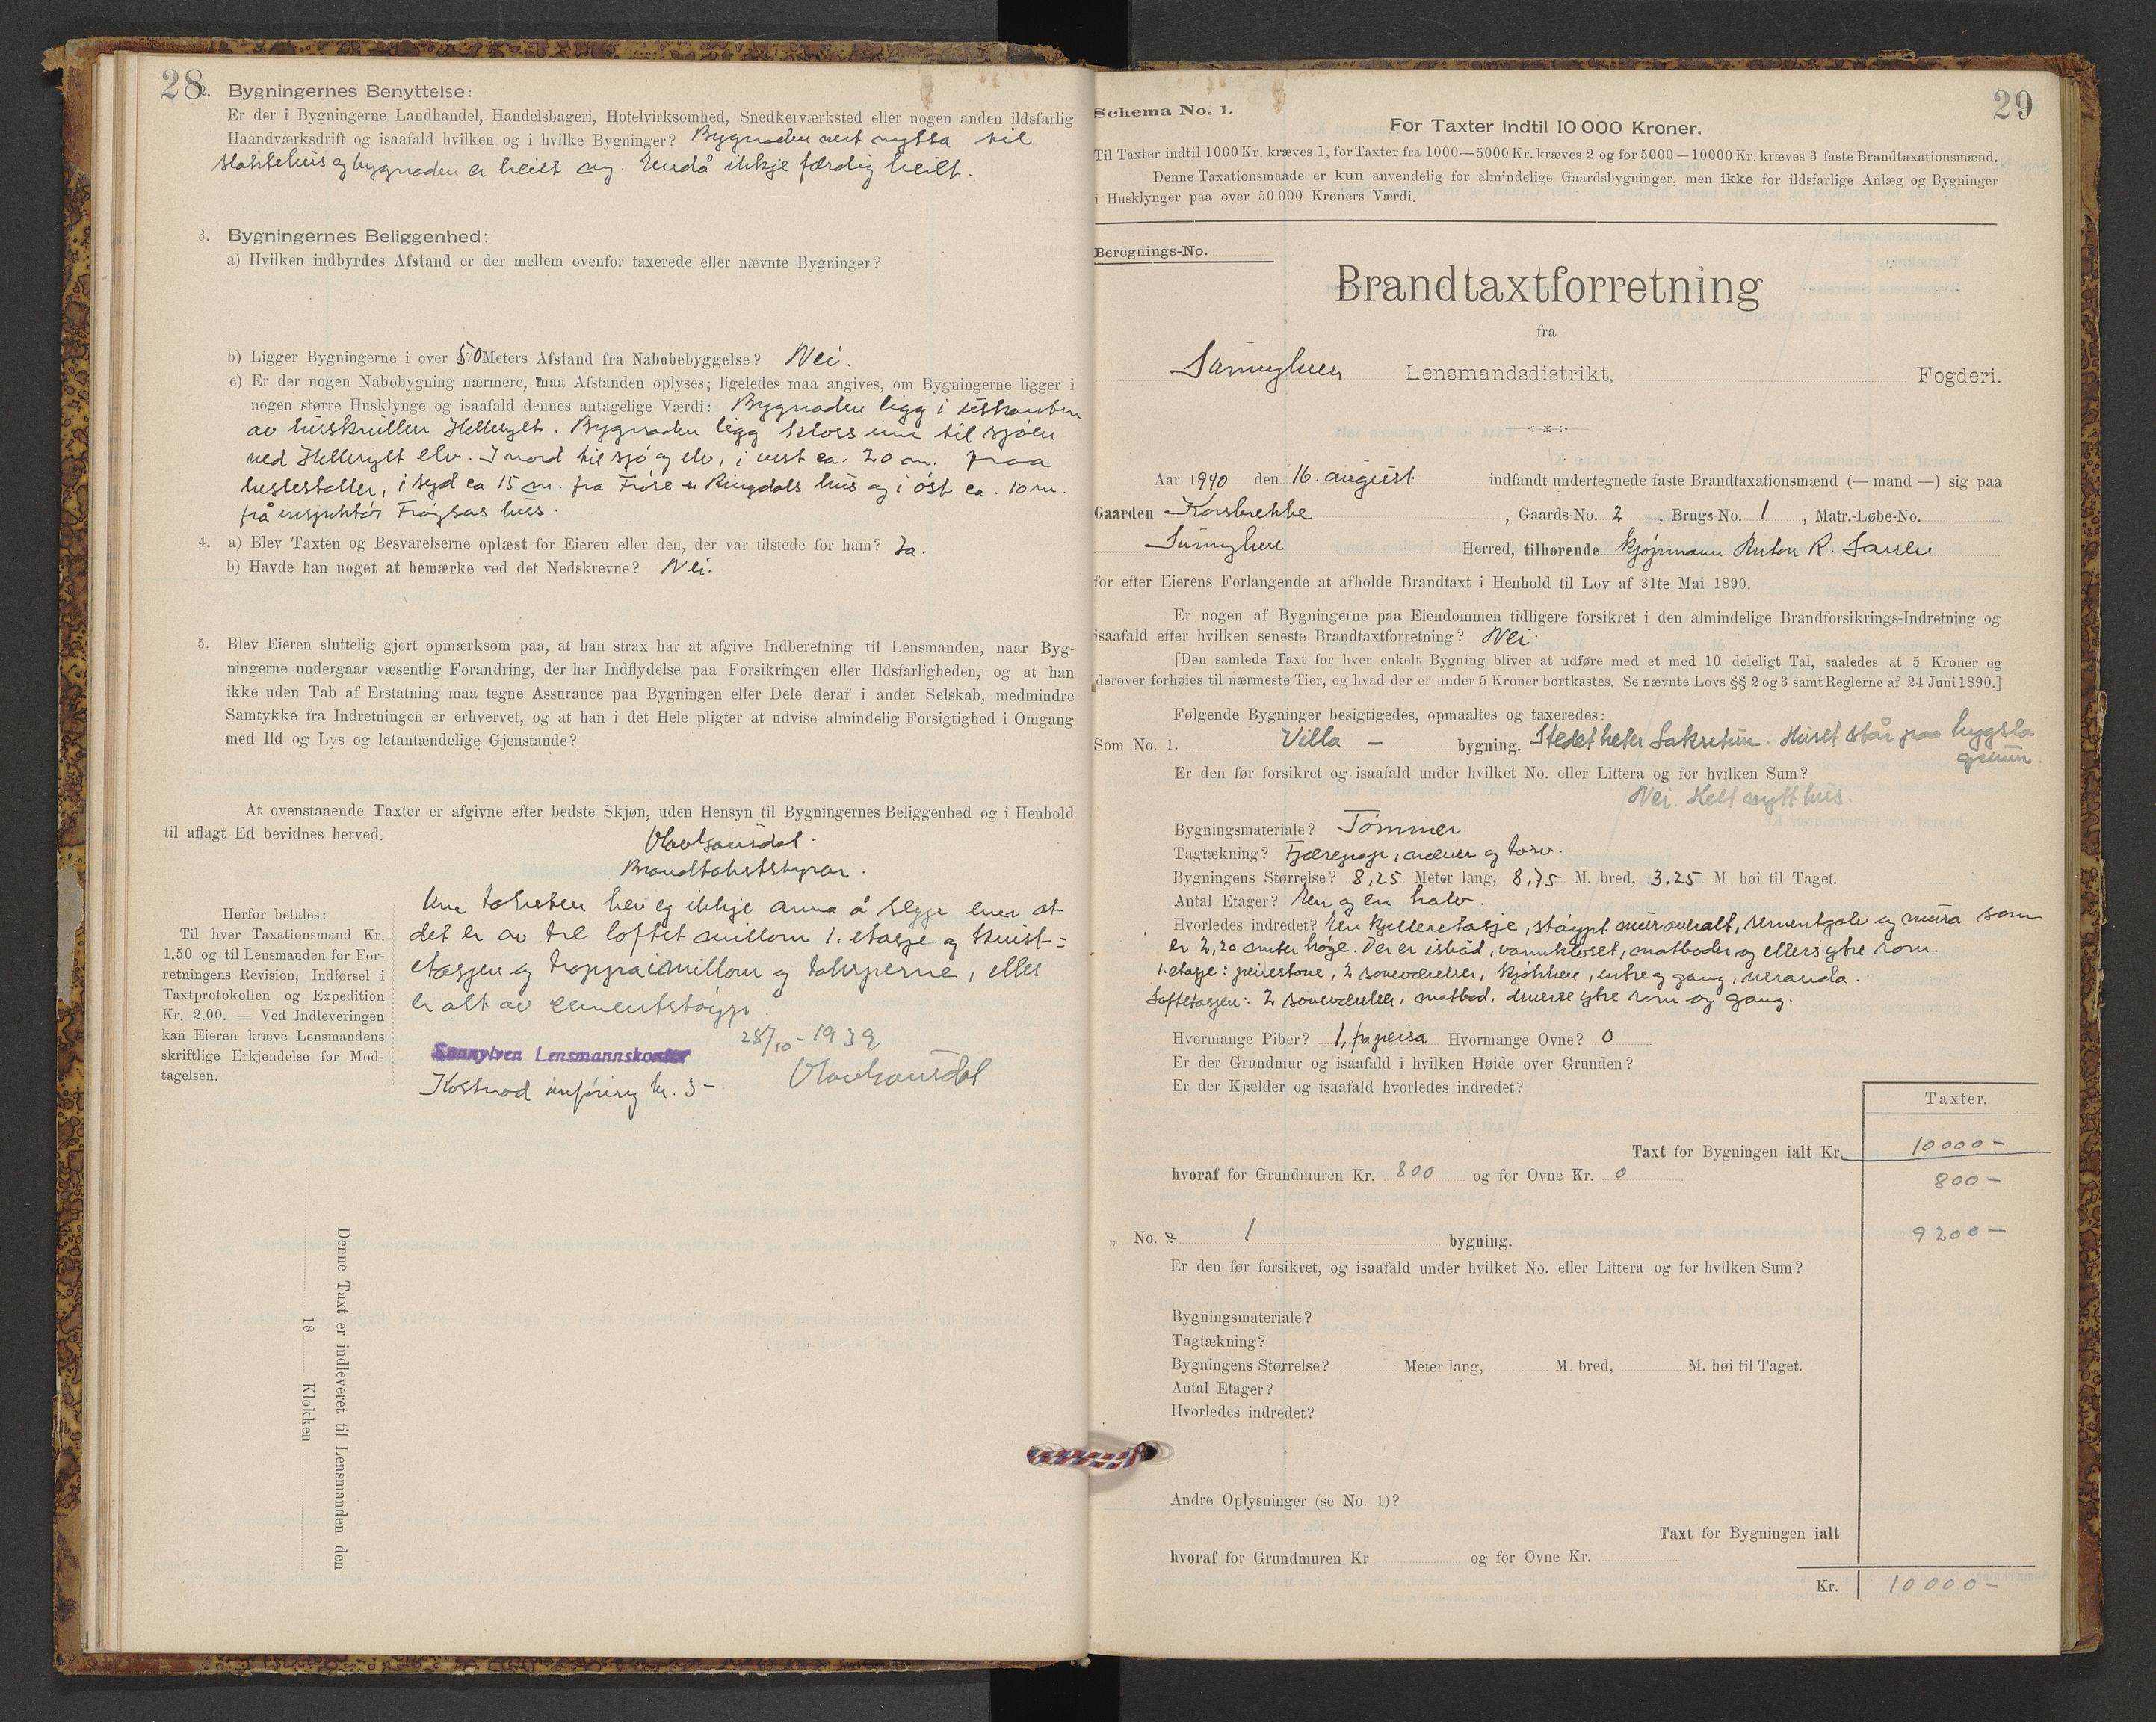 28
2. Bygningernes Benyttelse:
Er der i Bygningerne Landhandel, Handelsbageri, Hotelvirksomhed, Snedkerværksted eller nogen anden ildsfarlig
Haandværksdrift og isaafald hvilken og i hvilke Bygninger? Bygnaden vert nytta til
og bygnaden er heilt ny. Endå ikkje færdig heilt.
3. Bygningernes Beliggenhed:
a) Hvilken indbyrdes Afstand er der mellem ovenfor taxerede eller nævnte Bygninger?
b) Ligger Bygningerne i over 50 Meters Afstand fra Nabobebyggelse? Nei.
c) Er der nogen Nabobygning nærmere, maa Afstanden oplyses; ligeledes maa angives, om Bygningerne ligger i
nogen større Husklynge og isaafald dennes antagelige Værdi: Bygnaden ligg i utkanten
av Hellesylt. Bygnaden ligg kloss inn til sjøen
ved Hellesylt elv. I nord til sjø og elv, i vest ca. 20 m. fraa
hestestaller, i syd ca 15 m. fra Ringdals hus og i øst ca. 10 m.
frå inspektør hus.
4. a) Blev Taxten og Besvarelserne oplæst for Eieren eller den, der var tilstede for ham? Ja.
b) Havde han noget at bemærke ved det Nedskrevne? Nei.
5. Blev Eieren sluttelig gjort opmærksom paa, at han strax har at afgive Indberetning til Lensmanden, naar Byg-
ningerne undergaar væsentlig Forandring, der har Indflydelse paa Forsikringen eller Ildsfarligheden, og at han
ikke uden Tab af Erstatning maa tegne Assurance paa Bygningen eller Dele deraf i andet Selskab, medmindre
Samtykke fra Indretningen er erhvervet, og at han i det Hele pligter at udvise almindelig Forsigtighed i Omgang
med Ild og Lys og letantændelige Gjenstande?
At ovenstaaende Taxter er afgivne efter bedste Skjøn, uden Hensyn til Bygningernes Beliggenhed og i Henhold
til aflagt Ed bevidnes herved.
Brandtakstbyrar.
Um taksten hev eg ikkje anna å segge enn at
det er av tre loftet millom 1. etasje og kvist-
etasjen og trappa imillom og taksperrene, elles
er alt av cementstøyp.
Herfor betales:
Til hver Taxationsmand Kr.
1.50 og til Lensmanden for For-
retningens Revision, Indførsel i
Taxtprotokollen og Expedition
Kr. 2.00. — Ved Indleveringen
kan Eieren kræve Lensmandens
skriftlige Erkjendelse for Mod-
tagelsen.
Sunnylven Lensmannskontor
28/10-1939
Kostnad innføring kr. 3-
Denne Taxt er indleveret til Lensmanden den
18 Klokken
29
Schema No. 1.
For Taxter indtil 10 000 Kroner.
Til Taxter indtil 1000 Kr. kræves 1, for Taxter fra 1000—5000 Kr. kræves 2 og for 5000—10000 Kr. kræves 3 faste Brandtaxationsmænd.
Denne Taxationsmaade er kun anvendelig for almindelige Gaardsbygninger, men ikke for ildsfarlige Anlæg og Bygninger
i Husklynger paa over 50 000 Kroners Værdi.
Beregnings-No.
Brandtaxtforretning
fra
Sunnylven Lensmandsdistrikt, Fogderi.
Aar 1940 den 16. august indfandt undertegnede faste Brandtaxationsmænd (— mand —) sig paa
Gaarden Korsbrekke, Gaards-No. 2, Brugs-No. 1, Matr.-Løbe-No.
Sunnylven Herred, tilhørende kjøpmann Anton R.
for efter Eierens Forlangende at afholde Brandtaxt i Henhold til Lov af 31te Mai 1890.
Er nogen af Bygningerne paa Eiendommen tidligere forsikret i den almindelige Brandforsikrings-Indretning og
isaafald efter hvilken seneste Brandtaxtforretning? Nei.
[Den samlede Taxt for hver enkelt Bygning bliver at udføre med et med 10 deleligt Tal, saaledes at 5 Kroner og
derover forhøies til nærmeste Tier, og hvad der er under 5 Kroner bortkastes. Se nævnte Lovs §§ 2 og 3 samt Reglerne af 24 Juni 1890.]
Følgende Bygninger besigtigedes, opmaaltes og taxeredes:
Som No. 1. Villa - bygning. Stedet heter Huset står paa bygsla
grunn.
Er den før forsikret og isaafald under hvilket No. eller Littera og for hvilken Sum?
Nei. Helt nytt hus.
Bygningsmateriale? Tømmer
Tagtækning? næver og torv.
Bygningens Størrelse? 8,25 Meter lang, 8,75 M. bred, 3,25 M. høi til Taget.
Antal Etager? En og en halv.
Hvorledes indredet? En kjelleretasje, støypt mur overalt, cementgolv og mura som
er 2,20 meter høge. Der er isbod, vannkloset, matboder og ellers ytre rom.
1. etasje: peisestove, 2 soveværelser, kjøkken, entre og gang, veranda.
Loftetasjen: 2 soveværelser, matbod, diverse ytre rom og gang.
Hvormange Piber? 1, peisa Hvormange Ovne? 0
Er der Grundmur og isaafald i hvilken Høide over Grunden?
Er der Kjælder og isaafald hvorledes indredet?
Taxter.
Taxt for Bygningen ialt Kr. 10000-
hvoraf for Grundmuren Kr. 800 og for Ovne Kr. 0 800-
„ No. 2 1 bygning. 9200-
Er den før forsikret, og isaafald under hvilket No. eller Littera og for hvilken Sum?
Bygningsmateriale?
Tagtækning?
Bygningens Størrelse? Meter lang, M. bred, M. høi til Taget.
Antal Etager?
Hvorledes indredet?
Andre Oplysninger (se No. 1)?
Taxt for Bygningen ialt
hvoraf for Grundmuren Kr. og for Ovne Kr.
Kr. 10000-